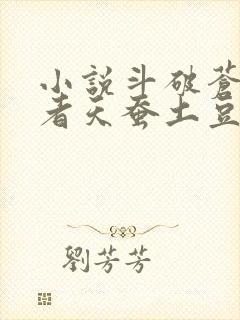 小說斗破蒼
者天蚕土豆
劉芳芳